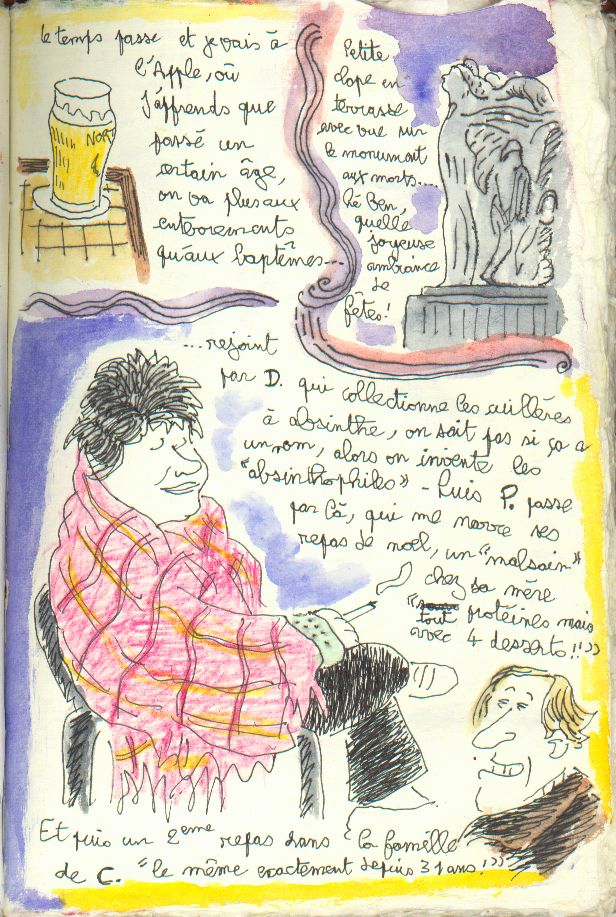 le temps passe et je vais à
l'Apple, où
j'apprends que
passé un
certain âge,
on va plus aux
enterrements
qu'aux baptêmes...
NORT
Petite
clope en
terrasse
avec vue sur
le monument
aux morts...
Hé Ben,
quelle
joyeuse
ambiance
de
fêtes!
...rejoint
par D. qui collectionne les cuillères
à absinthe, on sait pas si ça a
un nom, alors on invente les
"absinthophiles" - Puis P. passe
par là, qui me narre ses
repas de noël, un "malsain"
chez sa mère
"tout protéines mais
avec 4 desserts!!"
Et puis un 2eme repas dans la famille
de C. "le même exactement depuis 31 ans!"